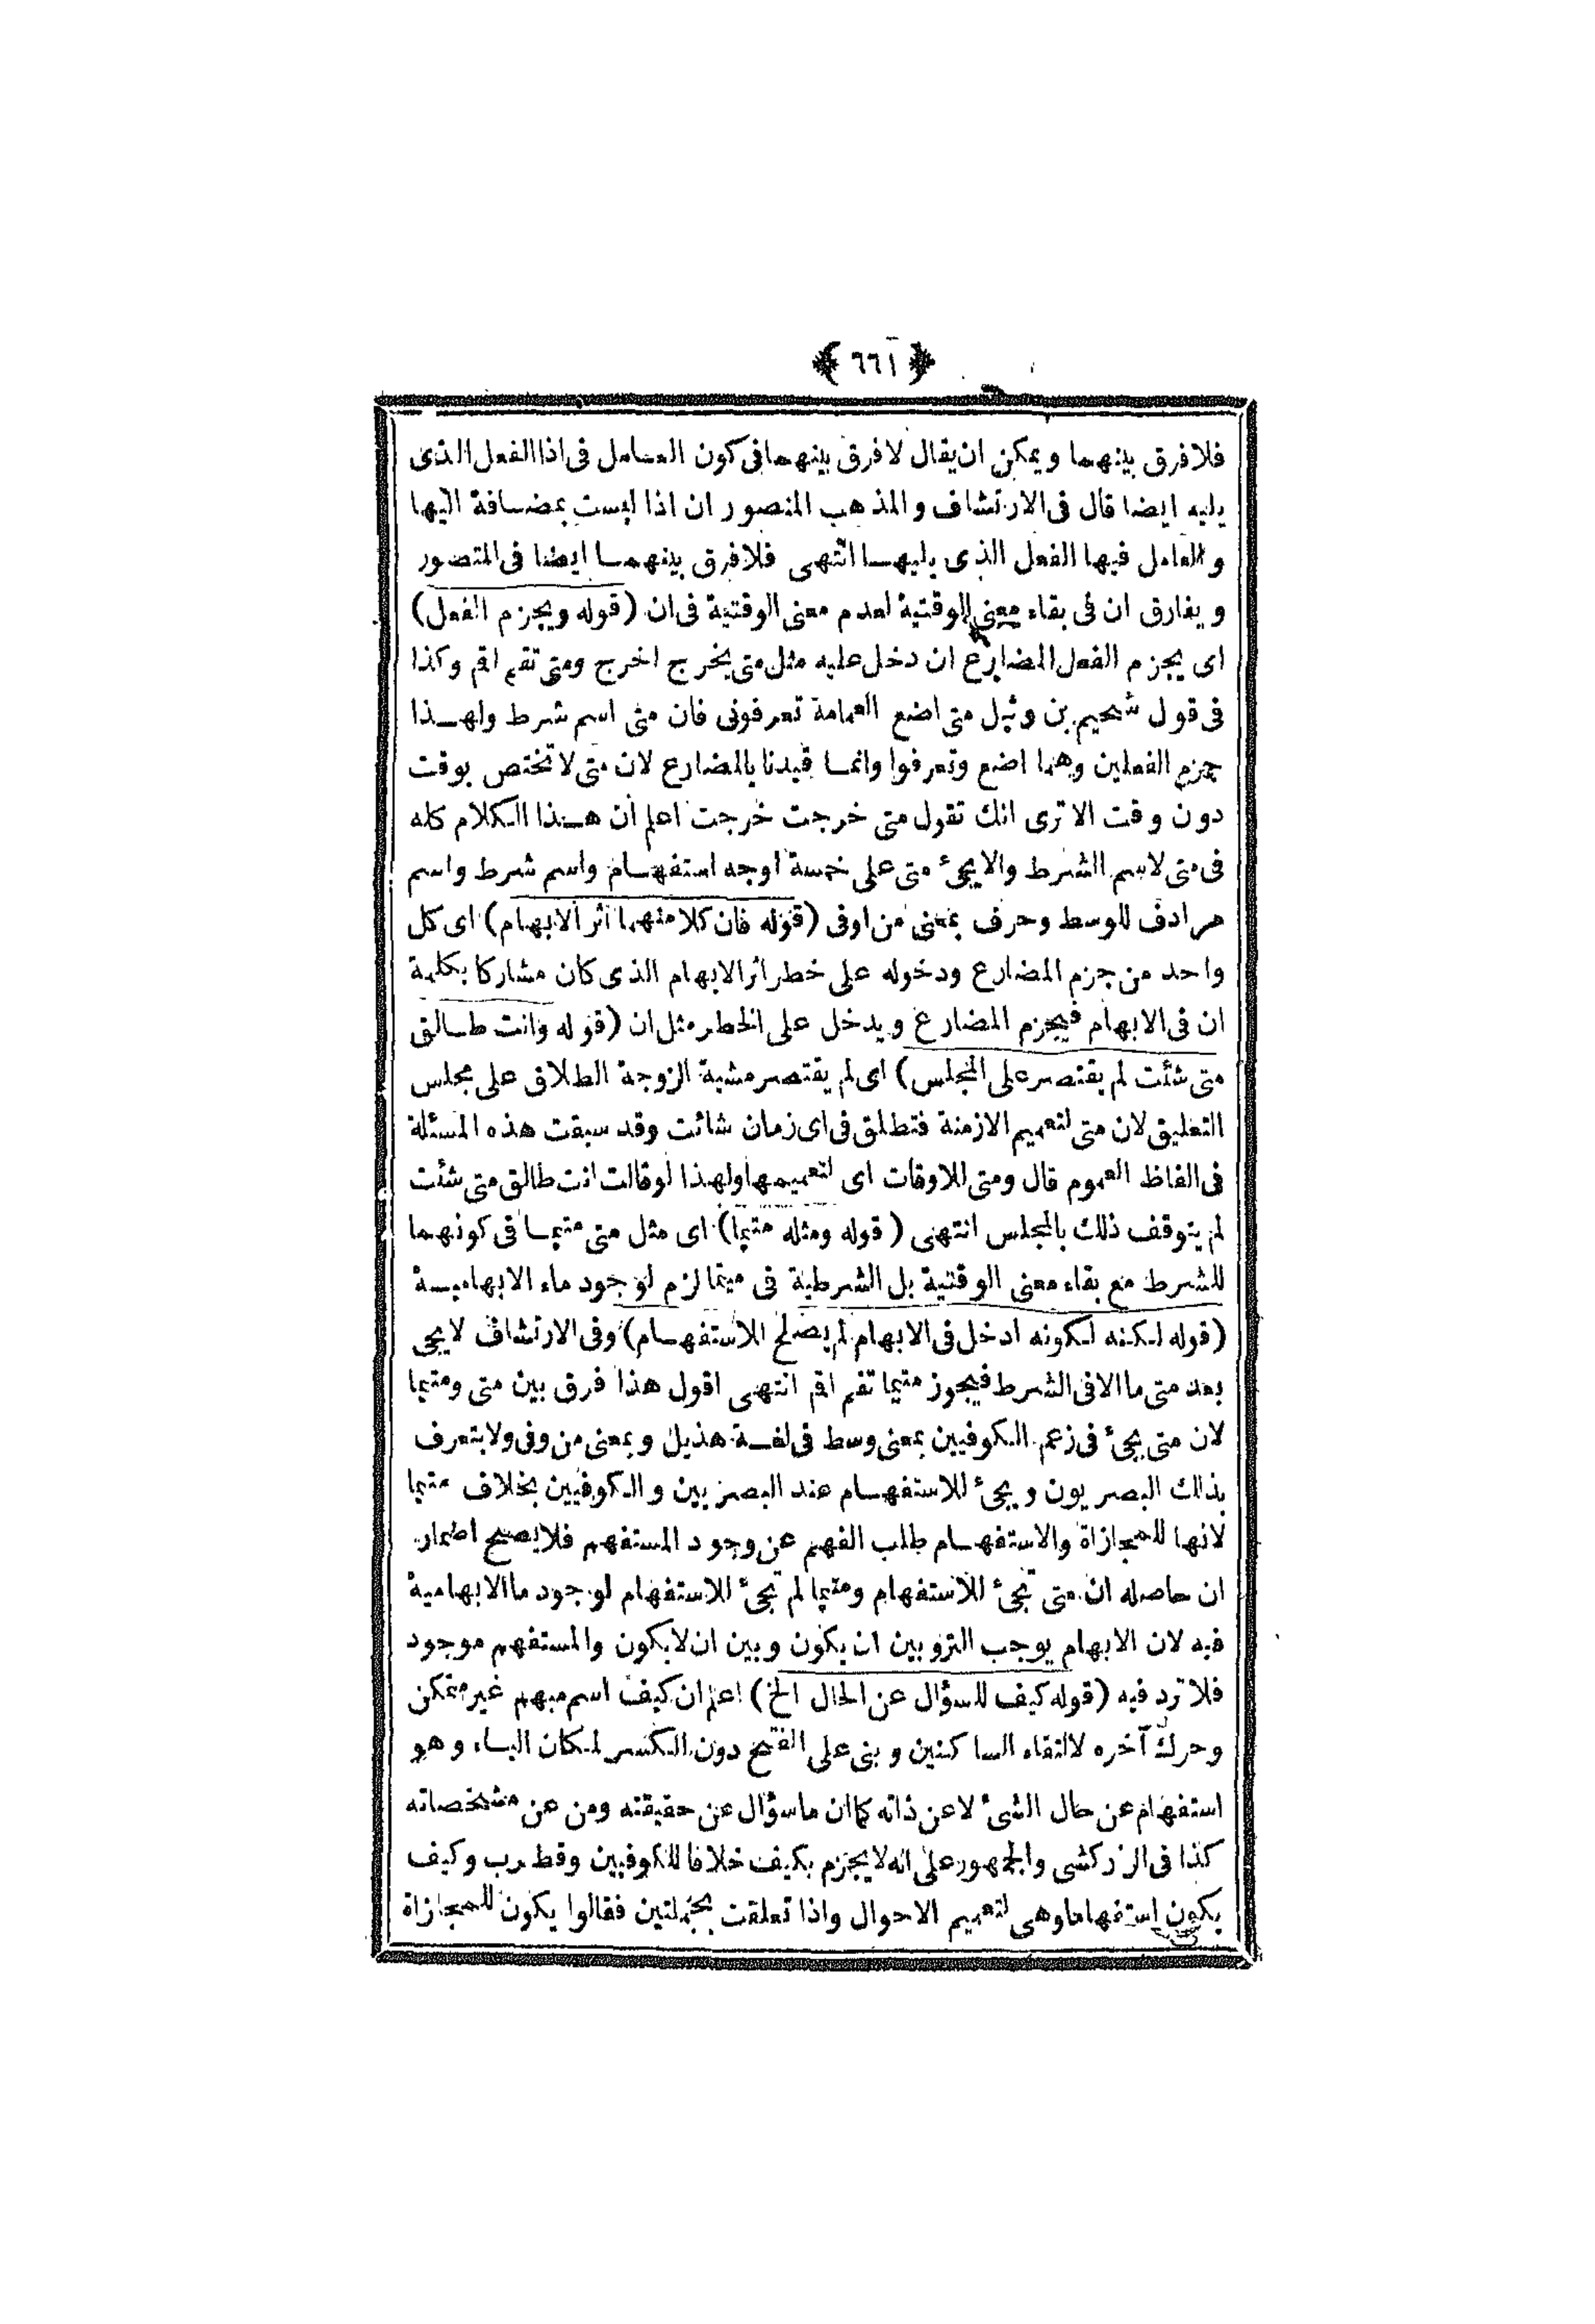 ﴿ ٦٦١ ﴾
فلا فرق بينهما ويمكن ان يقال لا فرق بينهما فى كون العامل فى اذا الفعل الذى
يليه ايضا قال فى الارتشاف والمذهب المنصور ان اذا ليست بمضافة اليها
والعامل فيها الفعل الذى يليها انتهى فلا فرق بينهما ايضا فى المتصور
ويفارق ان فى بقاء معنى الوقتية لعدم معنى الوقتية فى ان (قوله ويجزم الفعل)
اى يجزم الفعل المضارع ان دخل عليه مثل متى يخرج اخرج ومتى تقم اقم وكذا
فى قول شحيم بن وثيل متى اضع العمامة تعرفونى فان متى اسم شرط ولهذا
جزم الفعلين وهما اضع وتعرفوا وانما قيدنا بالمضارع لان متى لا تختص بوقت
دون وقت الا ترى انك تقول متى خرجت خرجت اعلم ان هذا الكلام كله
فى متى لاسم الشرط والا يجئ متى على خمسة اوجه استفهام واسم شرط واسم
مرادف للوسط وحرف بمعنى من اوفى (قوله فان كلا منهما اثر الابهام) اى كل
واحد من جزم المضارع ودخوله على خطر اثر الابهام الذى كان مشاركا بكلمة
ان فى الابهام فيجزم المضارع ويدخل على الخطر مثل ان (قوله وانت طالق
متى شئت لم يقتصر على المجلس) اى لم يقتصر مشية الزوجة الطلاق على مجلس
التعليق لان متى لتعميم الازمنة فتطلق فى اى زمان شائت وقد سبقت هذه المسئلة
فى الفاظ العموم قال ومتى للاوقات اى لتعميمها ولهذا لو قالت انت طالق متى شئت
لم يتوقف ذلك بالمجلس انتهى (قوله ومثله متيما) اى مثل متى متيما فى كونهما
للشرط مع بقاء معنى الوقتية بل الشرطية فى ميتما لزم لوجود ماء الابهامية
(قوله لكنه لكونه ادخل فى الابهام لم يصلح للاستفهام) وفى الارتشاف لا يجى
بعد متى ما الا فى الشرط فيجوز متيما تقم اقم انتهى اقول هذا فرق بين متى ومتيما
لان متى يجئ فى زعم الكوفيين بمعنى وسط فى لغة هذيل وبمعنى من وفى ولا يتعرف
بذلك البصريون ويجئ للاستفهام عند البصريين والكوفيين بخلاف متيما
لانها للمجازاة والاستفهام طلب الفهم عن وجود المستفهم فلا يصح اضمار
ان حاصله ان متى تجئ للاستفهام ومتيما لم تجئ للاستفهام لوجود ما الابهامية
فيه لان الابهام يوجب التزو بين ان يكون وبين ان لا يكون والمستفهم موجود
فلا ترد فيه (قوله كيف للسؤال عن الحال الخ) اعلم ان كيف اسم مبهم غير متمكن
وحرك آخره لالتقاء الساكنين وبنى على الفتح دون الكسر لمكان الياء وهو
استفهام عن حال الشئ لا عن ذاته كما ان ما سؤال عن حقيقته ومن عن مشخصاته
كذا فى الزركشى والجمهور على انه لا يجزم بكيف خلافا للكوفيين وقطرب وكيف
يكون استفهاما وهى لتعميم الاحوال واذا تعلقت بجملتين فقالوا يكون للمجازاة